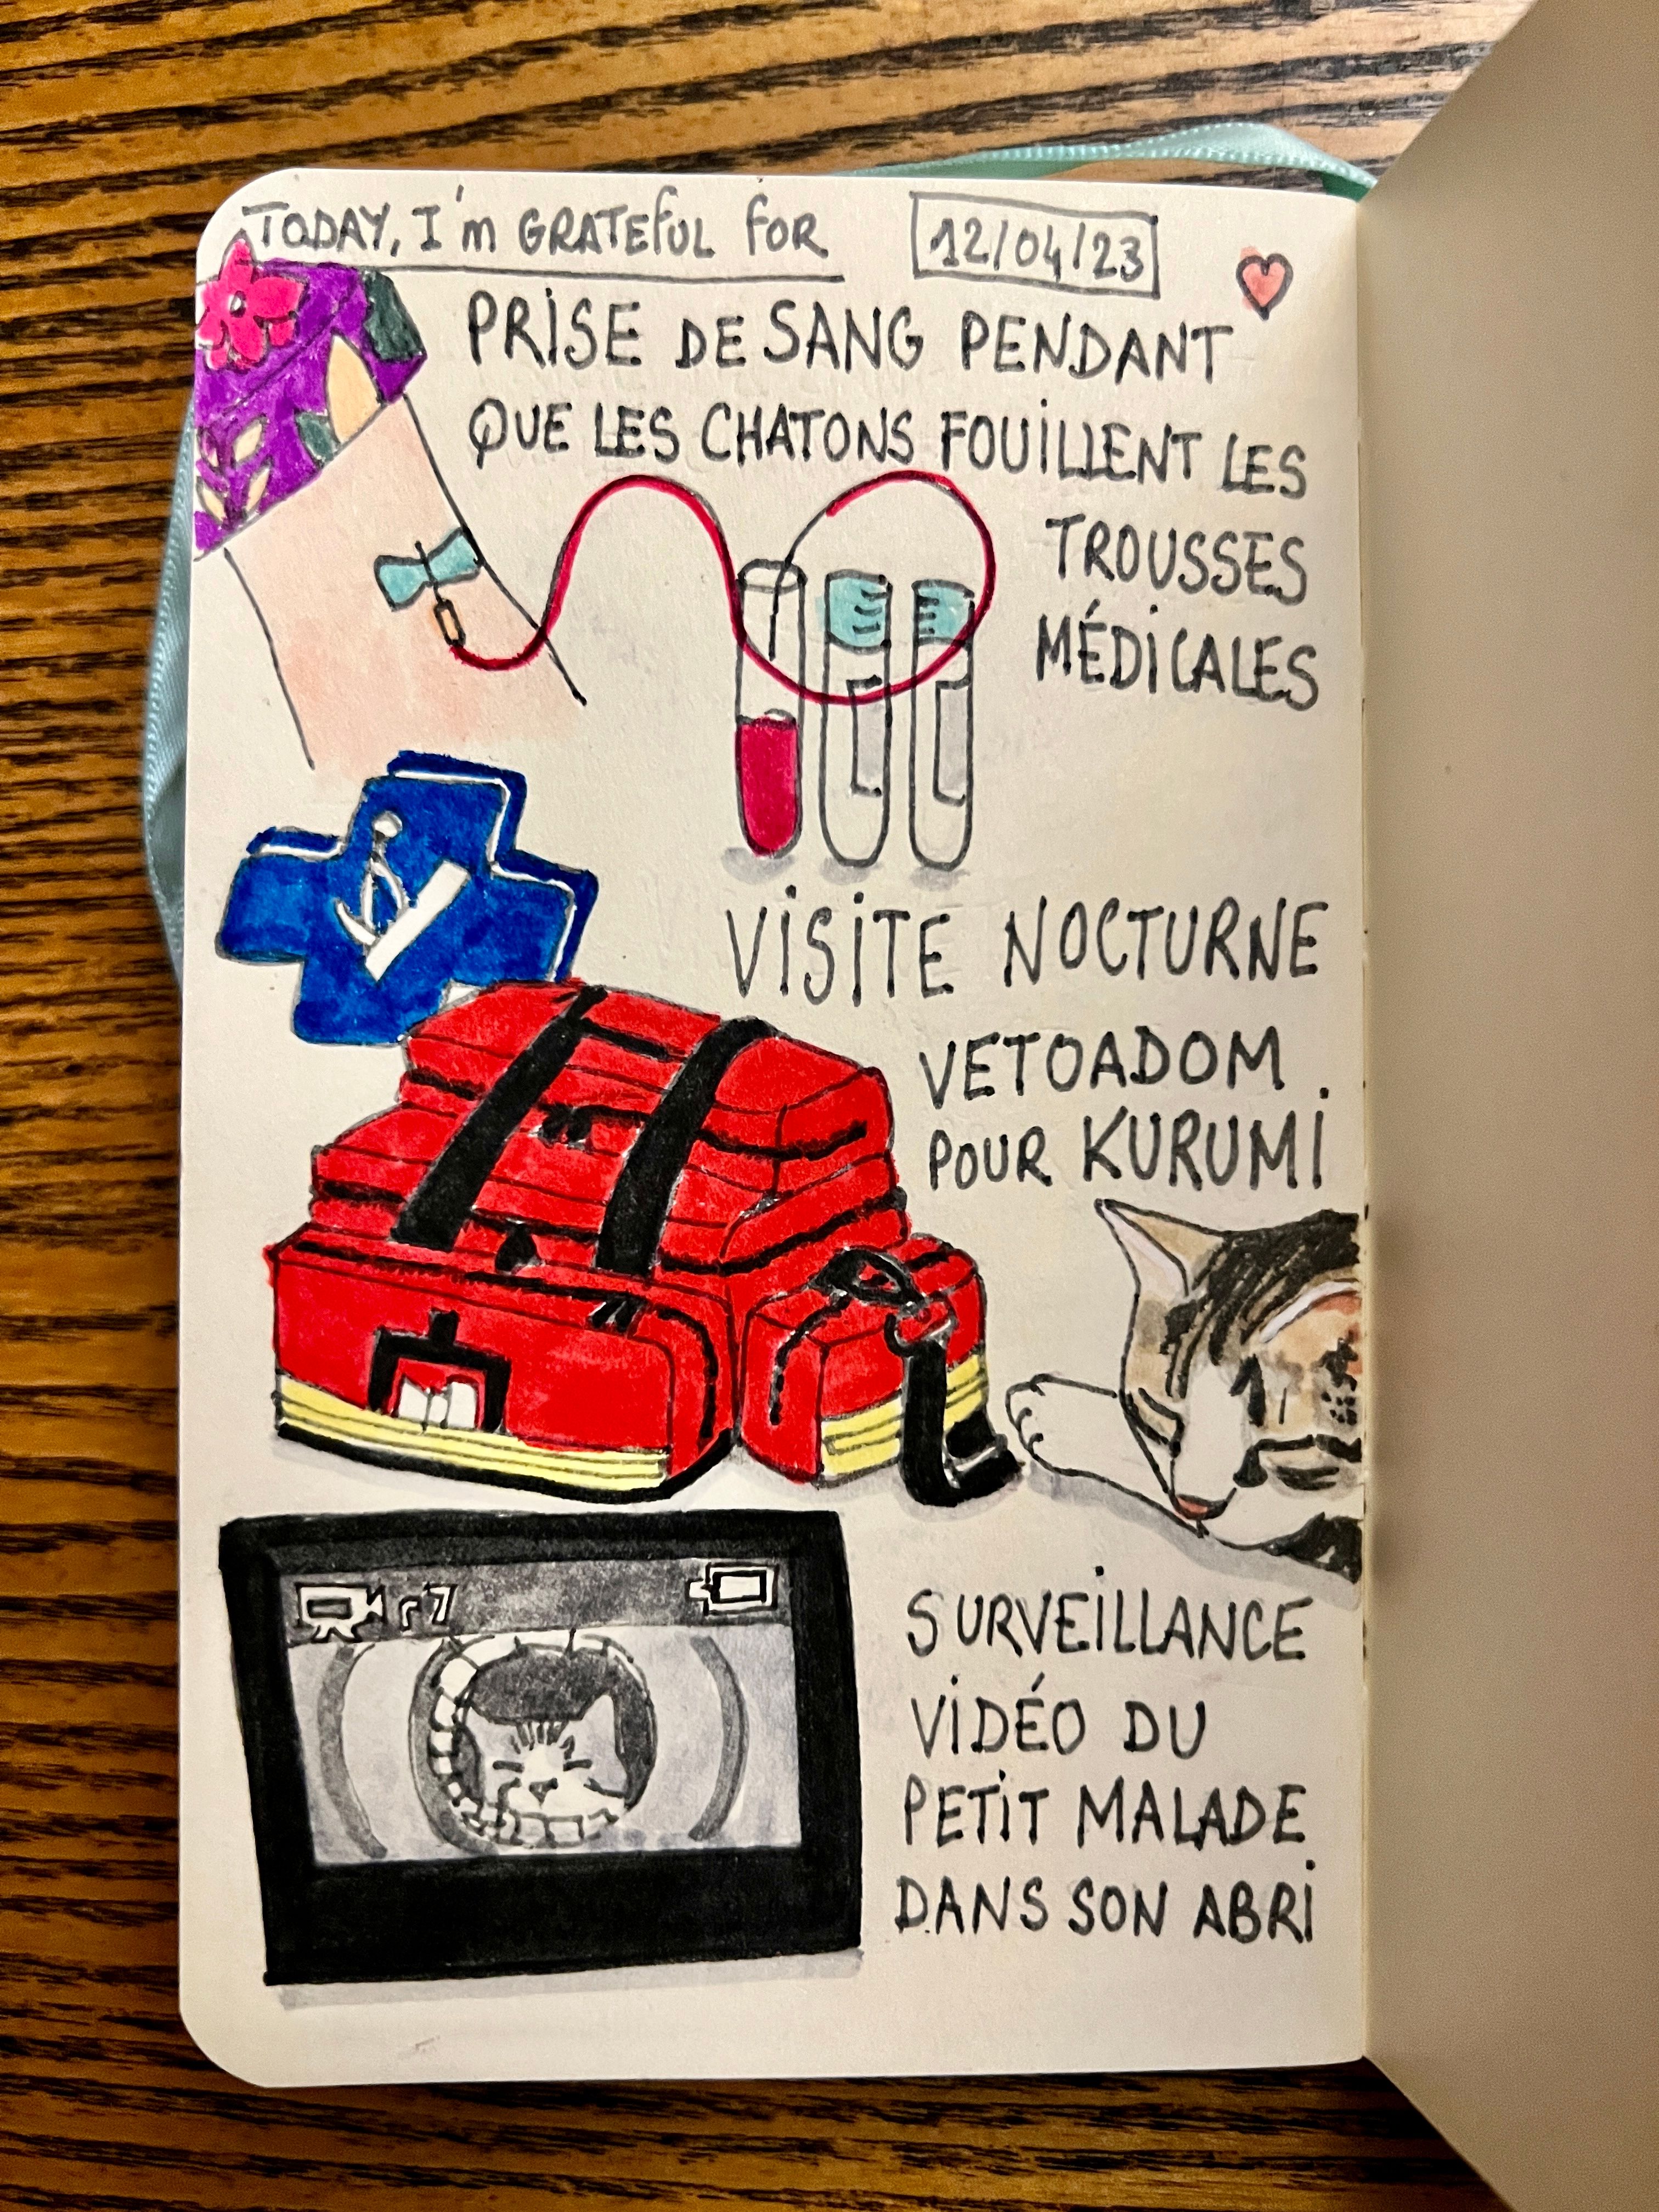 TODAY, I'm GRATEFUL FOR
12/04/23
PRISE DE SANG PENDANT
QUE LES CHATONS FOUILLENT LES
TROUSSES
MÉDICALES
VISITE NOCTURNE
VETOADOM
POUR KURUMI
SURVEILLANCE
VIDÉO DU
PETIT MALADE
DANS SON ABRI